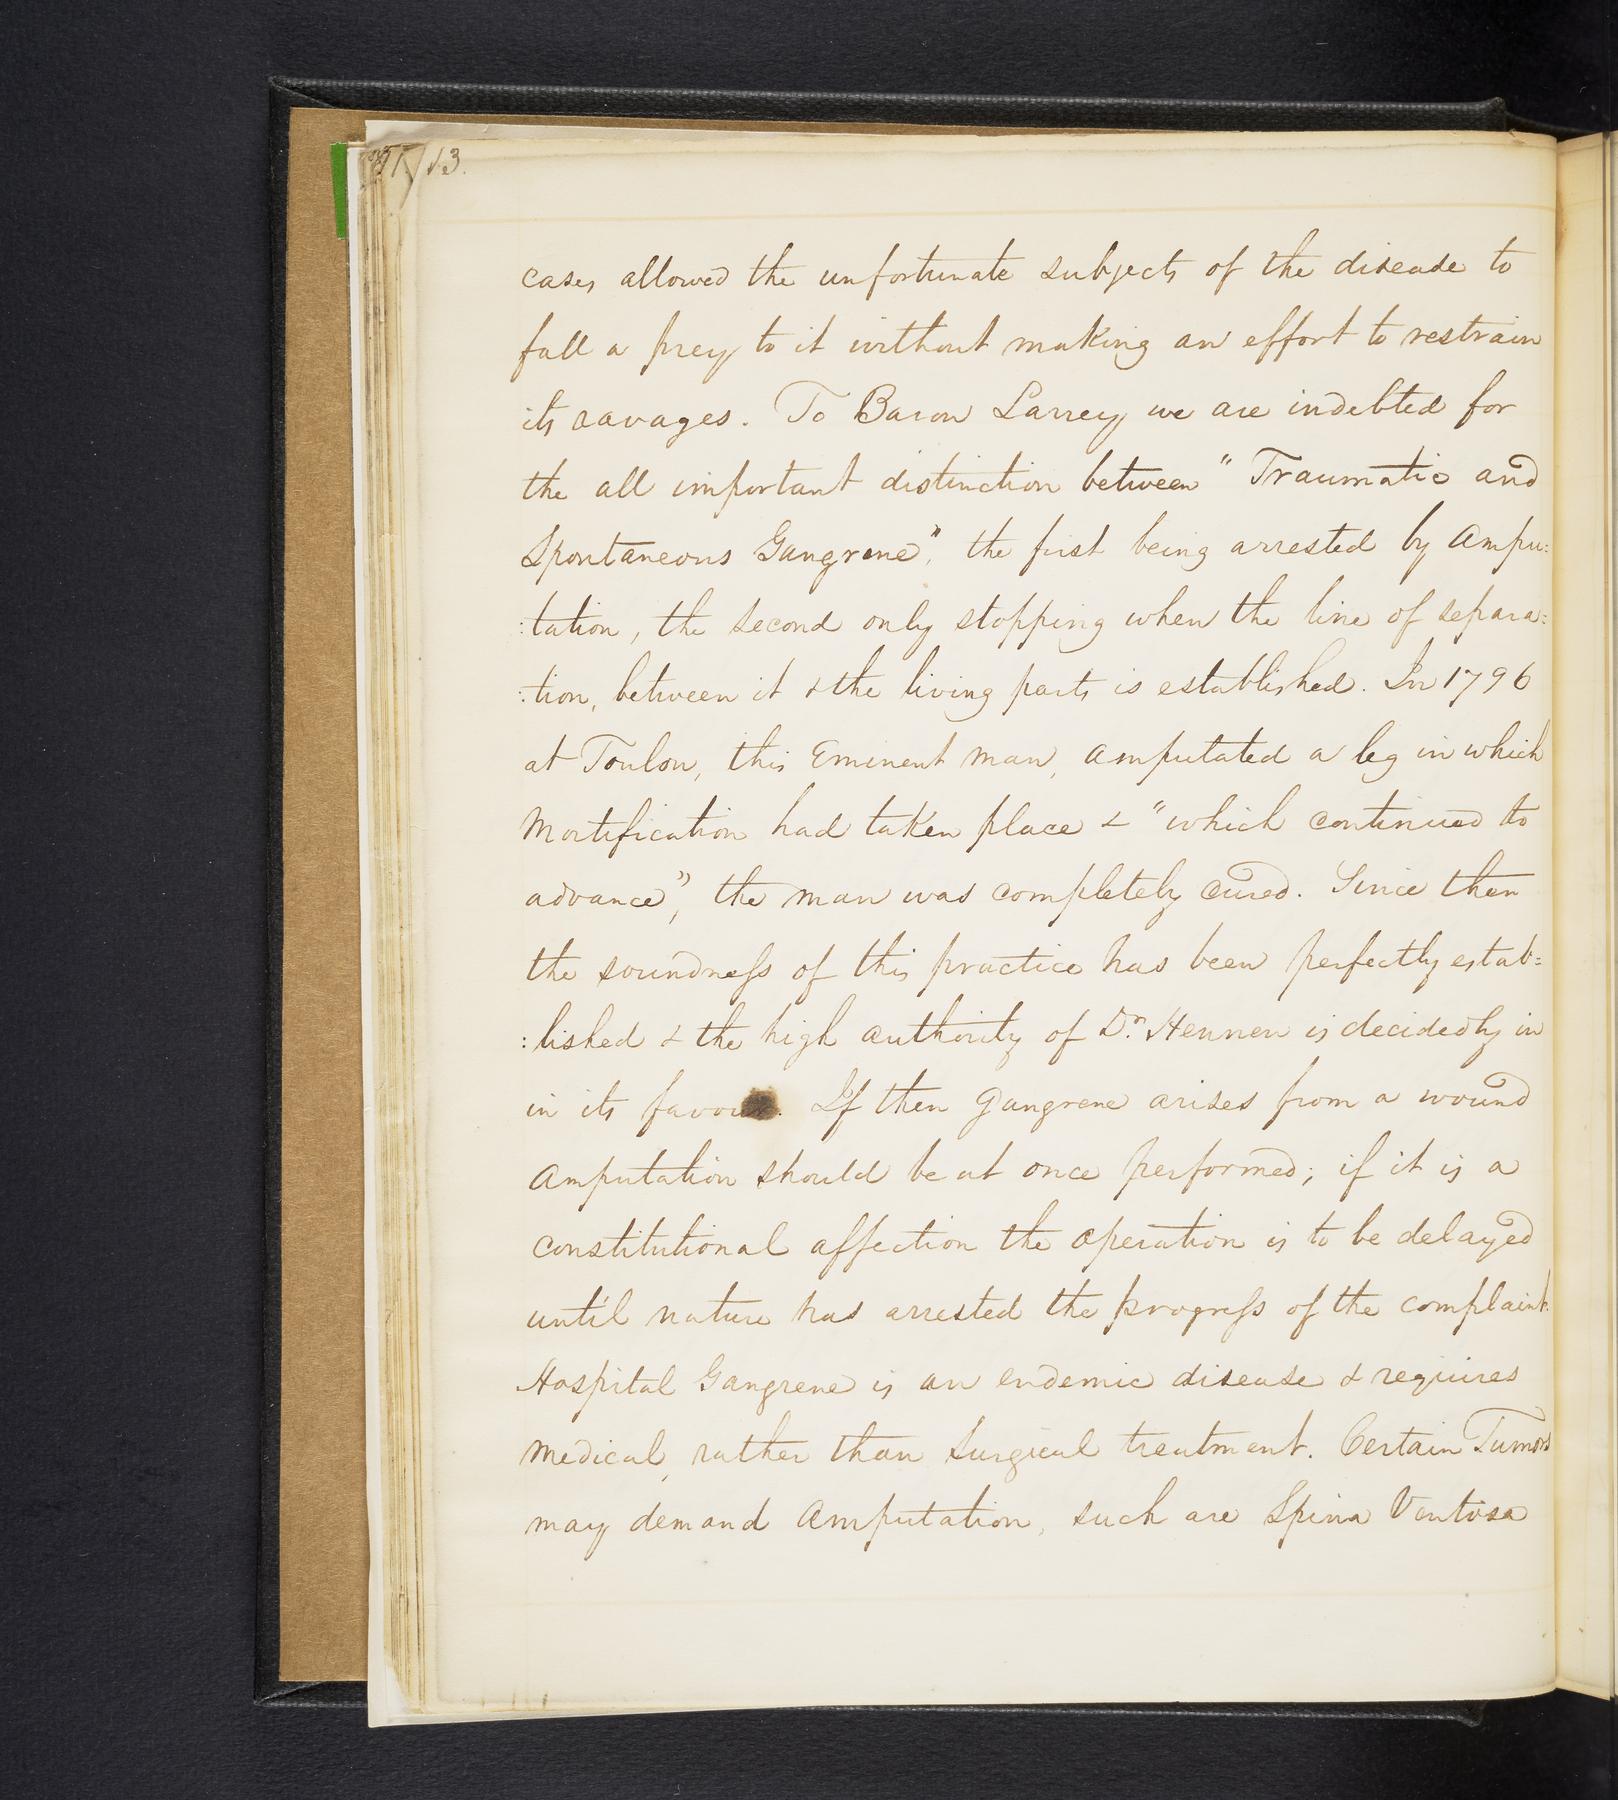 13.
cases allowed the unfortunate subjects of the disease to
fall a prey to it without making an effort to restrain
its ravages. To Baron Larrey we are indebted for
the all important distinction between "Traumatic and
Spontaneous Gangrene", the first being arrested by Ampu:
:tation, the second only stopping when the line of separa:
:tion, between it & the living parts is established. In 1796
at Toulon, this Eminent man, amputated a leg in which
Mortification had taken place & "which continued to
advance", the man was completely cured. Since then
the soundness of this practice has been perfectly estab=
:lished & the high authority of Dr. Hennen is decidedly in
in its favour. If then Gangrene arises from a wound
Amputation should be at once performed; if it is a
constitutional affection the operation is to be delayed
until nature has arrested the progress of the complaint.
Hospital Gangrene is an endemic disease & requires
medical, rather than Surgical treatment. Certain Tumors
may demand Amputation, such are Spina Ventosa